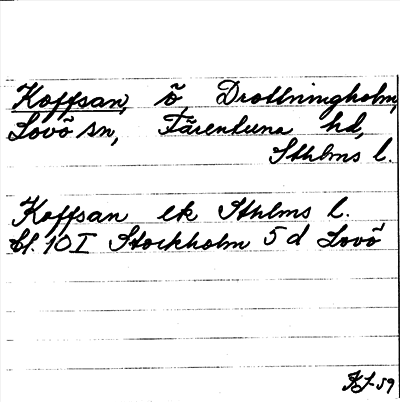 Koffsan, ö, Drottningholm,
Lovö sn, Färentuna hd,
Sthlms l.
Koffsan ek Sthlms l.
bl. 10 I Stockholm 5 d Lovö
KJ-59